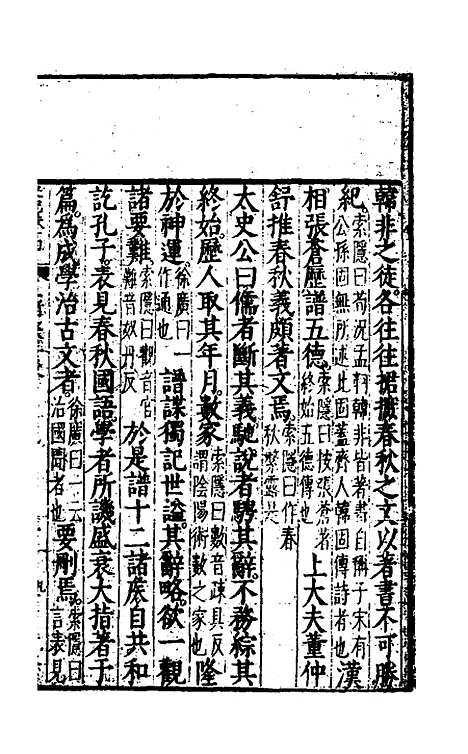 韓非之徒各往往捃摭春秋之文以著書不可勝
紀索隱曰荀況孟軻韓非皆著書自稱子宋有公孫固無所述此固蓋齊人韓固傳詩者也漢
相張蒼歷譜五德索隱曰按張蒼著終始五德傳也上大夫董仲
舒推春秋義頗著文焉索隱曰作春秋繁露是
太史公曰儒者斷其義馳說者騁其辭不務綜其
終始歷人取其年月數家索隱曰數音疎具反謂陰陽術數之家也隆
於神運徐廣曰一作通也譜諜獨記世謚其辭略欲一觀
諸要難索隱曰觀音官難音奴丹反於是譜十二諸矦自共和
訖孔子表見春秋國語學者所譏盛衰大指著于
篇為成學治古文者徐廣曰一云治國聞者也要刪焉索隱曰言表見